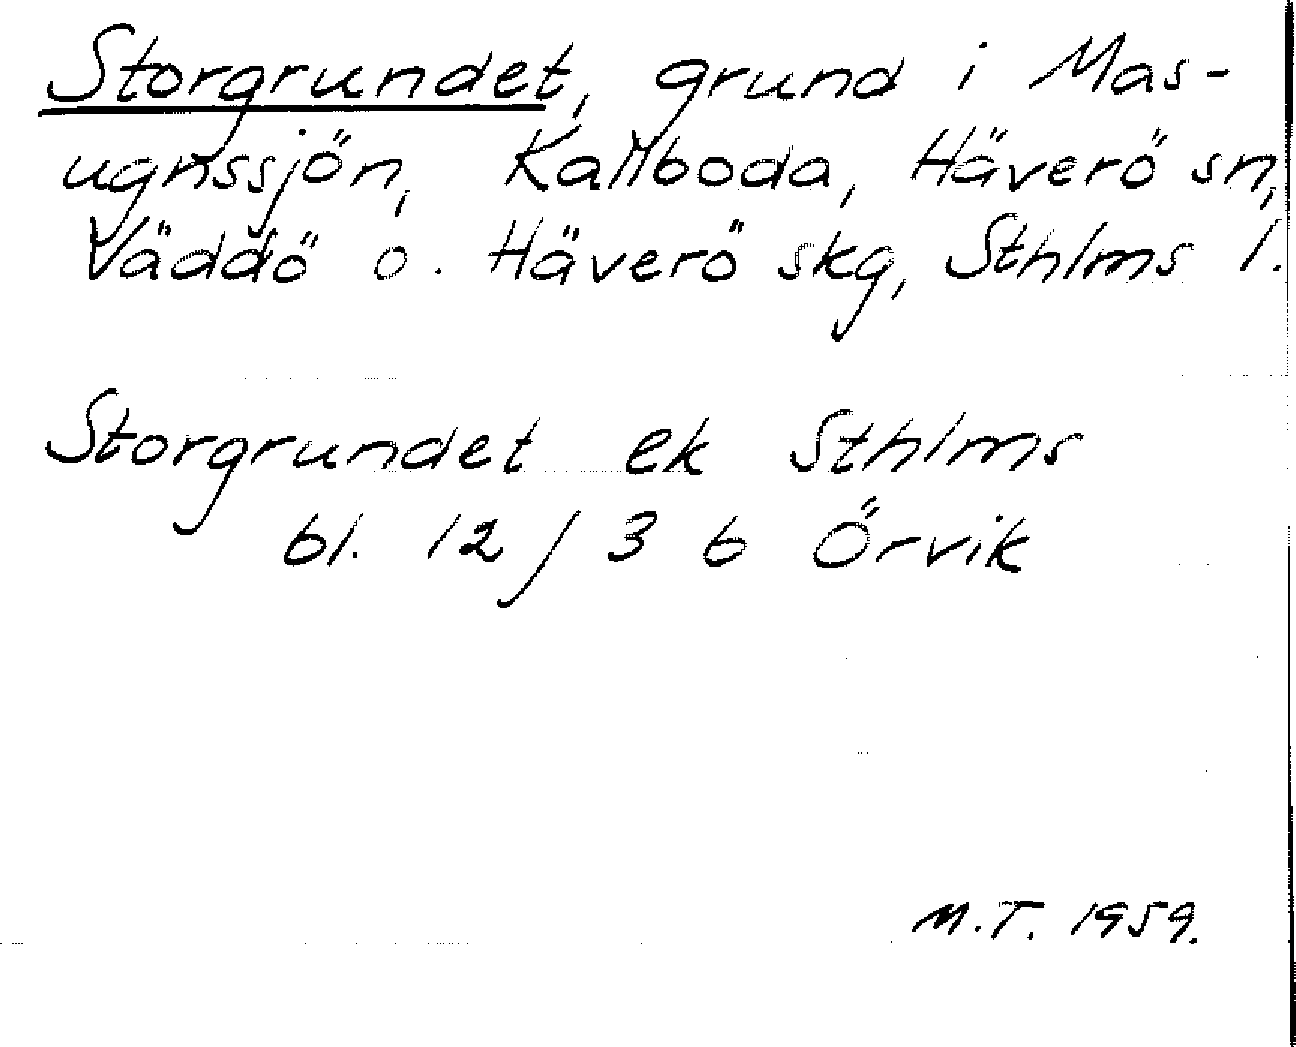 Storgrundet, grund i Mas-
ugnssjön, Kallboda, Häverö sn,
Väddö o. Häverö skg, Sthlms l.
Storgrundet ek Sthlms
bl. 12 / 3 b Örvik
M.T. 1959.